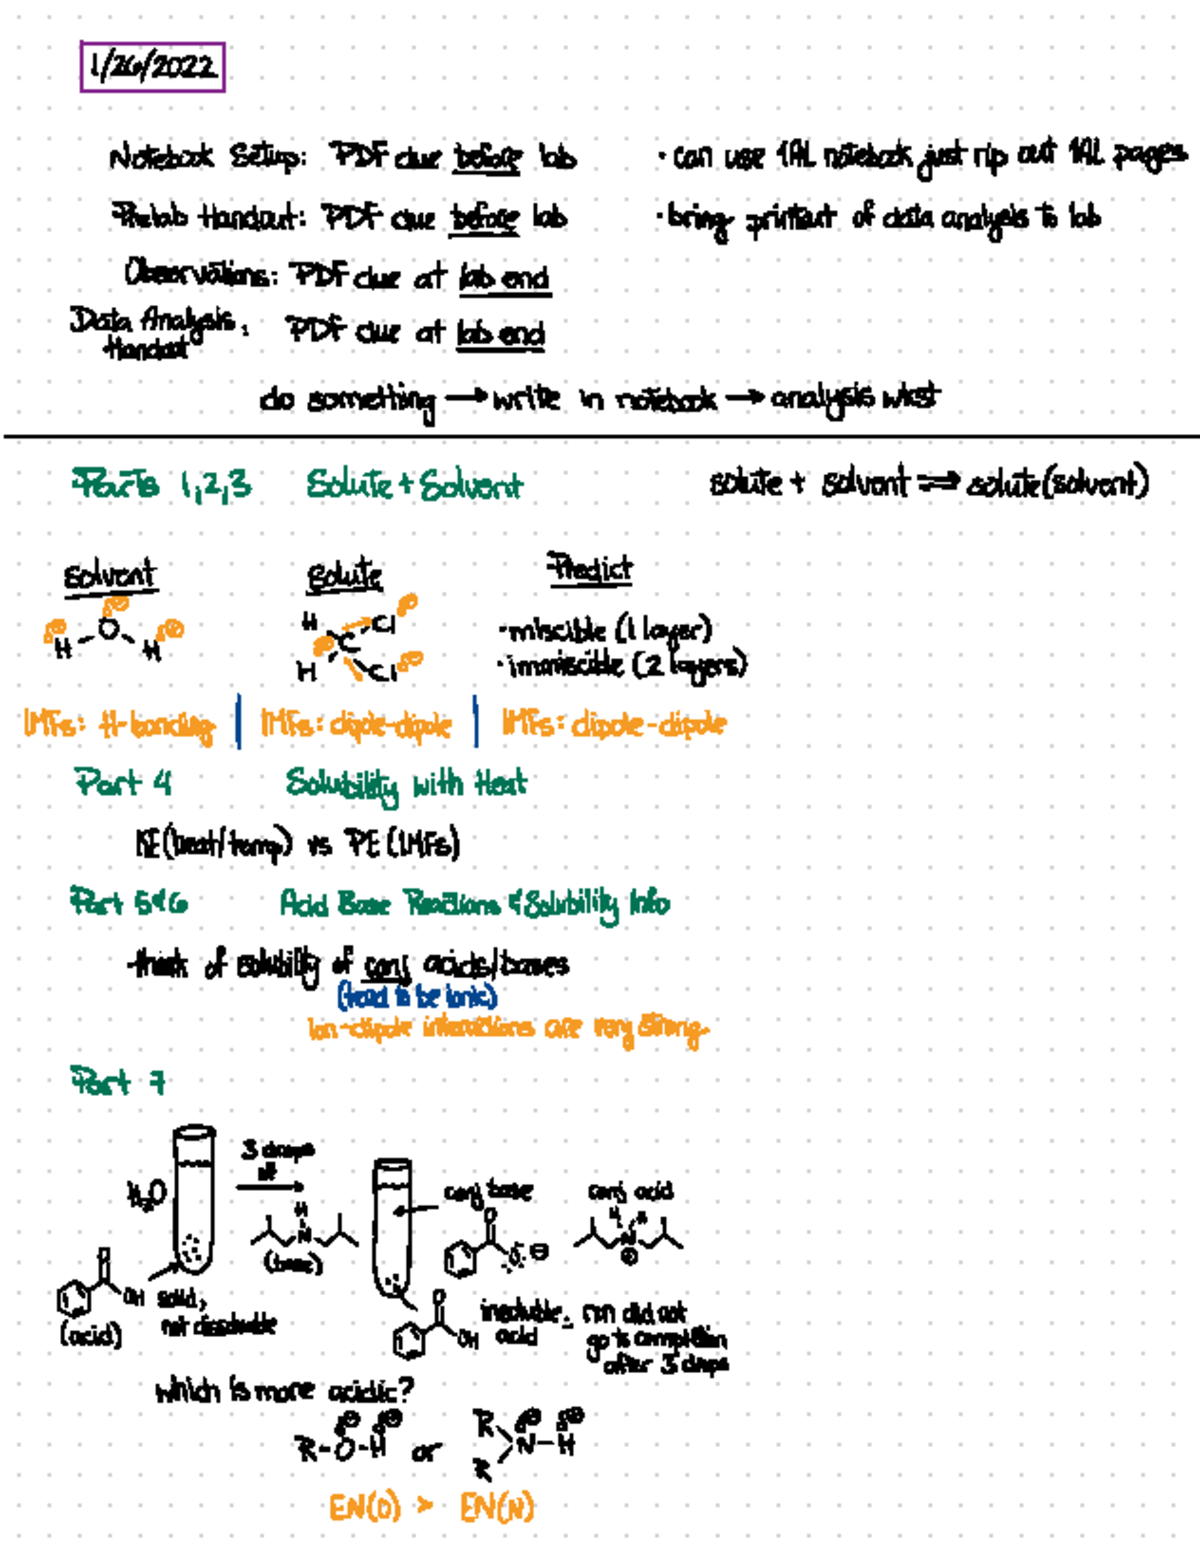 1/26/2022
Notebook Setup: PDF due before lab
· can use 1AL notebook just rip out 1AL pages
Prelab Handout: PDF due before lab
· bring printout of data analysis to lab
Observations: PDF due at lab end
Data Analysis Handout: PDF due at lab end
do something → write in notebook → analysis wkst
Parts 1,2,3 Solute + Solvent
solute + solvent ⇌ solute(solvent)
Solvent Solute Predict
δ⊖
H O H
δ⊕ δ⊕
H C Cl δ⊖
H Cl δ⊖
· miscible (1 layer)
· immiscible (2 layers)
IMFs: H-bonding | IMFs: dipole-dipole | IMFs: dipole-dipole
Part 4 Solubility with Heat
KE (heat/temp) vs PE (IMFs)
Part 5&6 Acid Base Reactions & Solubility Info
-think of solubility of conj acids/bases
(tend to be ionic)
Ion-dipole interactions are very strong.
Part 7
H₂O
3 drops of
H
N
(base)
conj base
O
O ⊖
conj acid
H H
N
⊕
O
OH
(acid)
solid,
not dissoluble
O
OH
insoluble acid
rxn did not
go to completion
after 3 drops
which is more acidic?
R-O-H or R R N-H
δ⊖ δ⊕ δ⊖ δ⊕
EN(O) > EN(N)